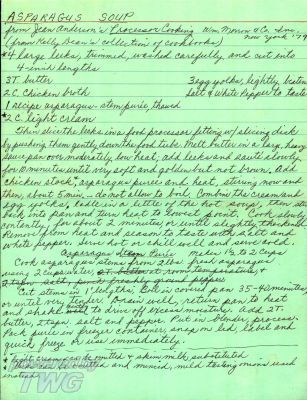 ASPARAGUS SOUP
from Jean Anderson's Processor Cooking Wm. Morrow & Co. Inc.
(from Kelly Dean's collection of cookbooks) New York '79
*4 large leeks, trimmed, washed carefully and cut into
4-inch lengths
3T. butter 3 egg yolks, lightly beaten
2 C. chicken broth Salt & White Pepper to taste
1 recipe asparagus - stem purie, thawed
*2 C. light cream
Thin slice the leeks in a food processor fitting w/ slicing disk
by pushing them gently down the food tube. Melt butter in a large, heavy
sauce pan over moderately low heat, add leeks and saute slowly
for 10 minutes until very soft and golden but not brown. Add
chicken stock, asparagus purees and heat, stirring now and
then, about 5 min., do not allow to boil. Combine the cream and
egg yolks, add in a little of the hot soup, then stir
back into pan and turn heat to lowest point. Cook slowly
constantly for about 2 minutes, or until slightly thickened.
Remove from heat and season to taste with salt and
white pepper. Serve hot or chill well and serve cold.
Asparagus Stem Purie makes 1 1/2 to 2 cups
Cook asparagus stems from 2 lbs fresh asparagus
using 2 cups water,
Cut stems in 1" lengths. Boil in covered pan 35-40 minutes
or until very tender. Drain well, return pan to heat
and shake to drive off excess moisture. Add 2T.
butter, 2 tspn. salt and pepper. Put in blender, process.
Pack purie in freezer container, snap on lid, label and
quick freeze or use immediately.
* Light cream can be omitted & skim milk substituted
omitted and minced, mild tasting onions used
instead.
TWG